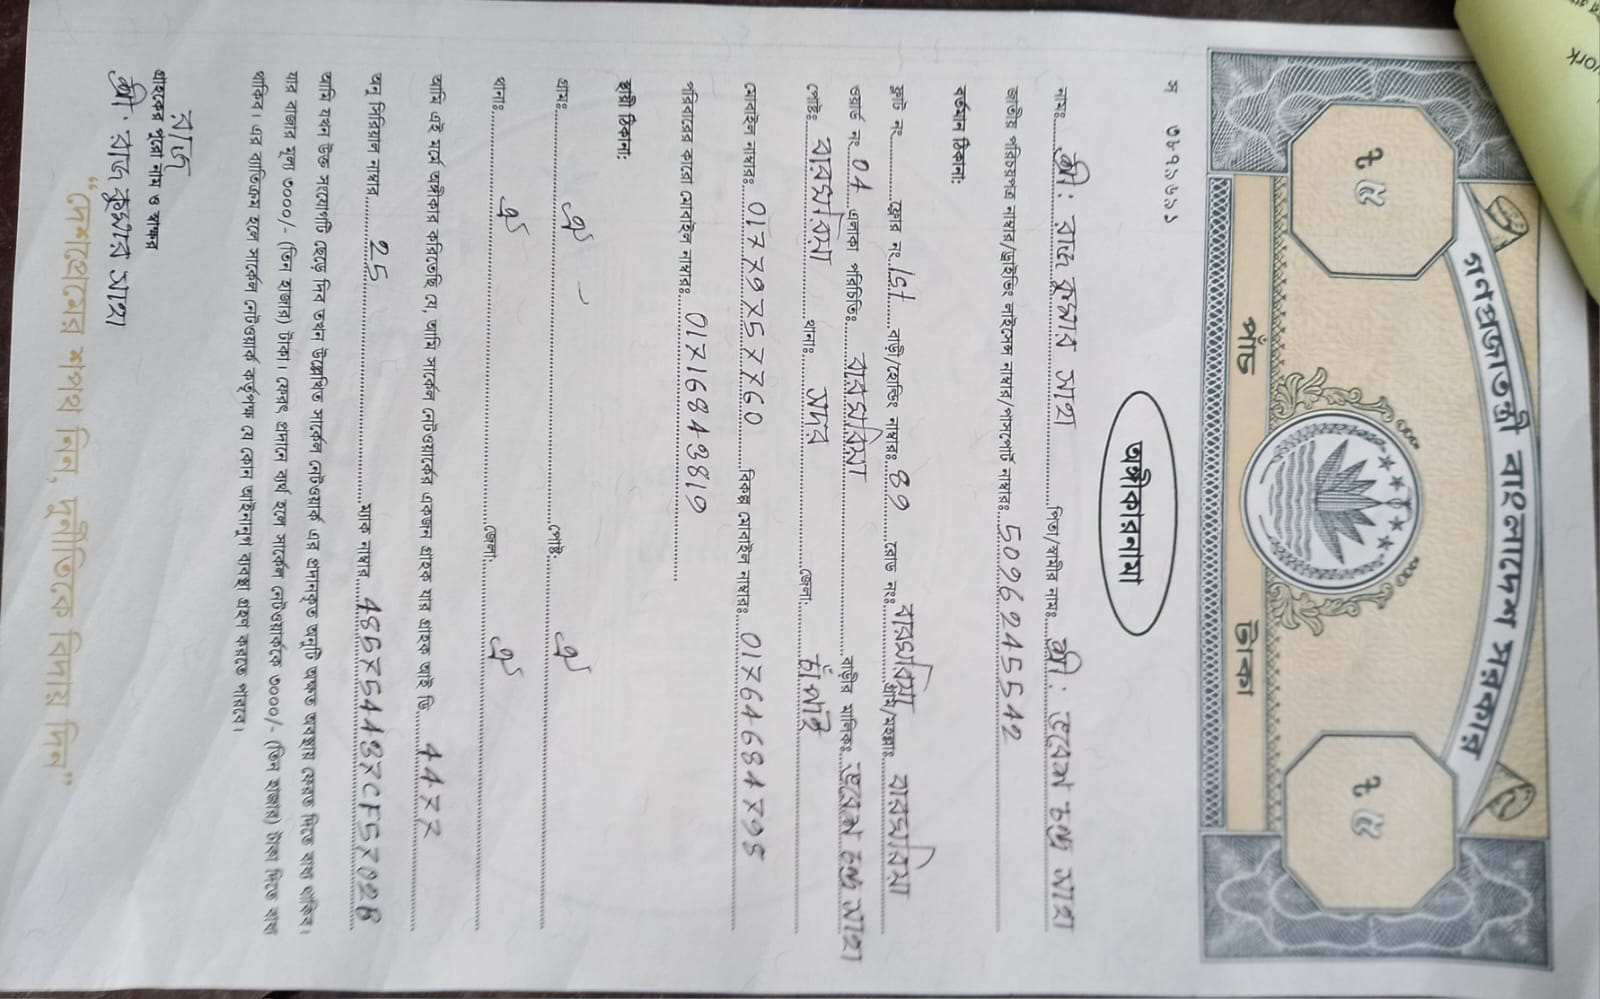 গনপ্রজাতন্ত্রী বাংলাদেশ সরকার
৳ ৫
৳ ৫
পাঁচ টাকা
স ৩৮৭১৬৬১
অঙ্গীকারনামা
নাম: শ্রী: রাজ কুমার সাহা পিতা/স্বামীর নামঃ শ্রী: ভবেশ চন্দ্র সাহা
জাতীয় পরিচয়পত্র নাম্বার/ড্রাইভিং লাইসেন্স নাম্বার/পাসপোর্ট নাম্বারঃ 5096245542
বর্তমান ঠিকানা:
ফ্লাট নং ফ্লোর নং 1st বাড়ী/হোল্ডিং নাম্বারঃ 89 রোড নংঃ বারঘরিয়া গ্রাম/মহল্লাঃ বারঘরিয়া
ওয়ার্ড নং 04 এলাকা পরিচিতিঃ বারঘরিয়া বাড়ীর মালিকঃ ভবেশ চন্দ্র সাহা
পোষ্টঃ বারঘরিয়া থানাঃ সদর জেলা: চাঁপাই
মোবাইল নাম্বারঃ 01779757760 বিকল্প মোবাইল নাম্বারঃ
পরিবারের কারো মোবাইল নাম্বারঃ 01716849819
স্থায়ী ঠিকানা:
গ্রামঃ ঐ পোষ্ট: ঐ
থানাঃ ঐ জেলা: ঐ
আমি এই মর্মে অঙ্গীকার করিতেছি যে, আমি সার্কেল নেটওয়ার্কের একজন গ্রাহক যার গ্রাহক আই ডি 4477
অনু সিরিয়াল নাম্বার 25 ম্যাক নাম্বার
আমি যখন উক্ত সংযোগটি ছেড়ে দিব তখন উল্লেখিত সার্কেল নেটওয়ার্ক এর প্রদানকৃত অনুটি অক্ষত অবস্থায় ফেরত দিতে বাধ্য থাকিব।
যার বাজার মূল্য ৩০০০/- (তিন হাজার) টাকা। ফেরৎ প্রদানে ব্যর্থ হলে সার্কেল নেটওয়ার্ককে ৩০০০/- (তিন হাজার) টাকা দিতে বাধ্য
থাকিব। এর ব্যতিক্রম হলে সার্কেল নেটওয়ার্ক কর্তৃপক্ষ যে কোন আইনানুগ ব্যবস্থা গ্রহণ করতে পারবে।
রাজ
গ্রাহকের পুরো নাম ও স্বাক্ষর
শ্রী: রাজ কুমার সাহা
“দেশপ্রেমের শপথ নিন, দুর্নীতিকে বিদায় দিন”